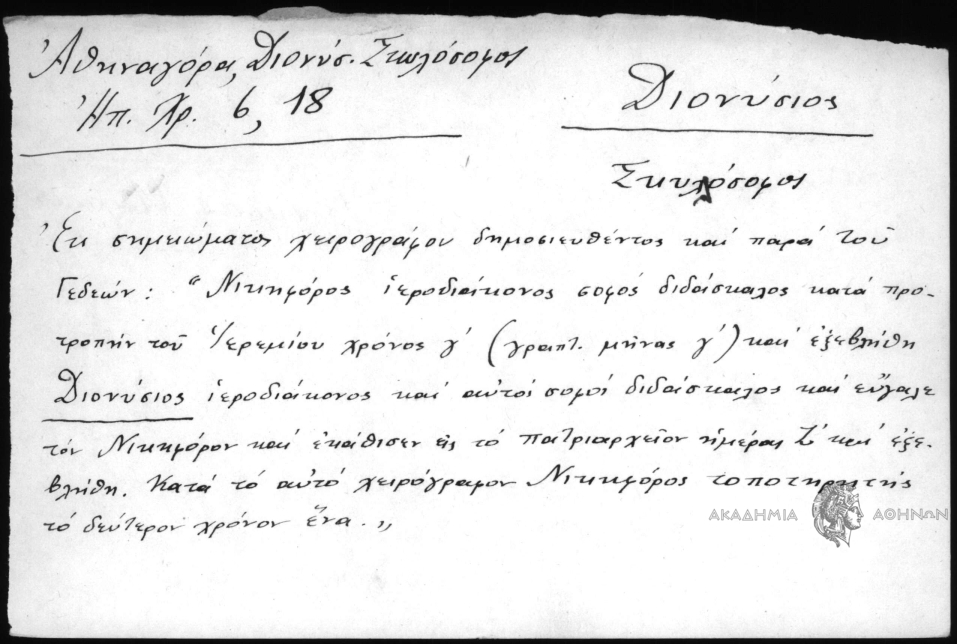 Ἀθηναγόρα, Διονύσ. Σκυλόσοφος
Ἠπ. Χρ. 6, 18
Διονύσιος
Σκυλόσοφος
Ἐκ σημειώματος χειρογράφου δημοσιευθέντος καί παρά τοῦ
Γεδεών: "Νικηφόρος ἱεροδιάκονος σοφός διδάσκαλος κατά προ-
τροπήν τοῦ Ἱερεμίου χρόνος γ' (γραπτ. μῆνας γ') καί ἐξεβλήθη
Διονύσιος ἱεροδιάκονος καί αὐτοί σοφοί διδάσκαλος καί εὔγαλε
τόν Νικηφόρον καί ἐκάθισεν εἰς τό πατριαρχεῖον ἡμέρας ζ' καί ἐξε-
βλήθη. Κατά τό αὐτό χειρόγραφον Νικηφόρος τοποτηρητής
τό δεύτερον χρόνον ἕνα.,,
ΑΚΑΔΗΜΙΑ ΑΘΗΝΩΝ